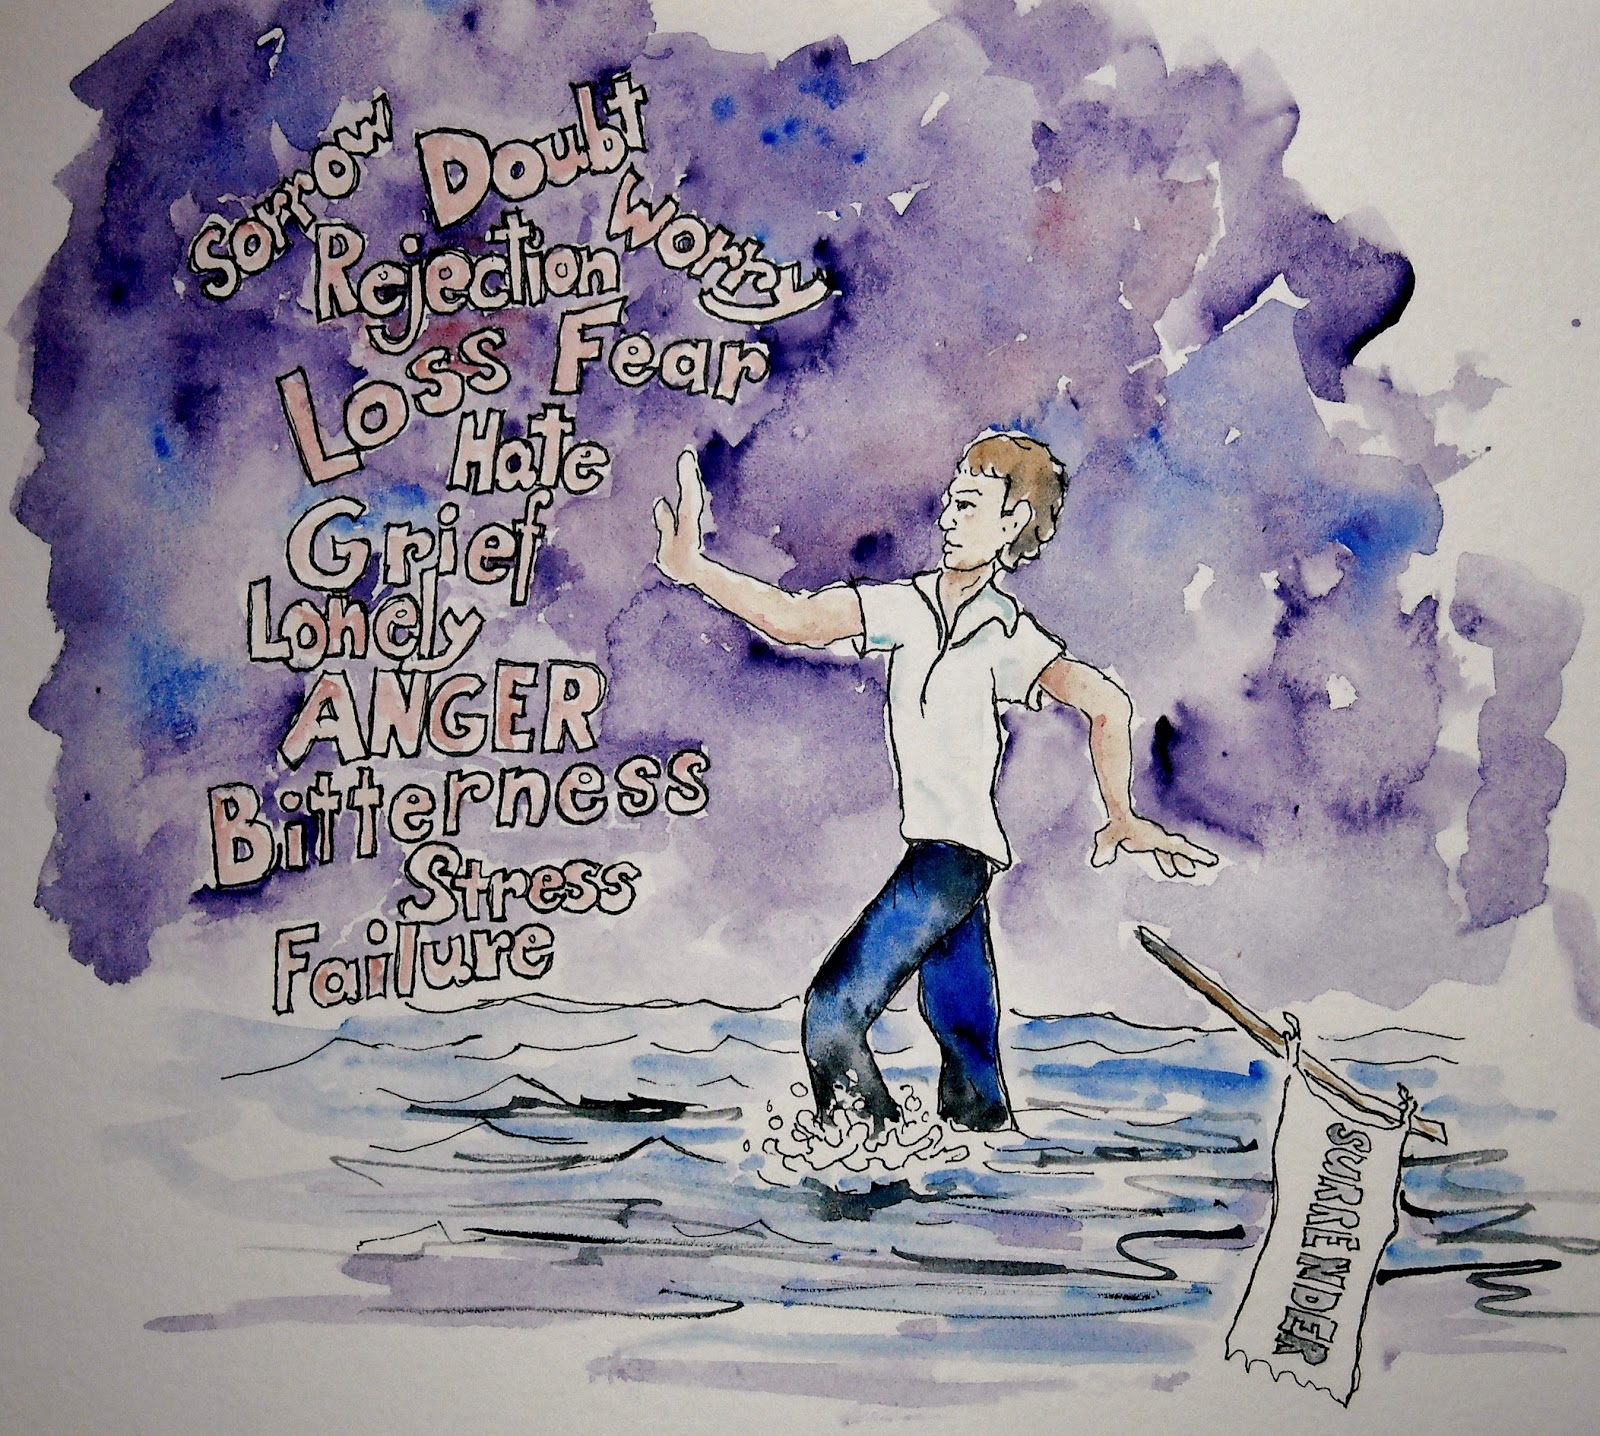 Sorrow Doubt
Worry
Rejection
Loss Fear
Hate
Grief
Lonely
ANGER
Bitterness
Stress
Failure
SURRENDER